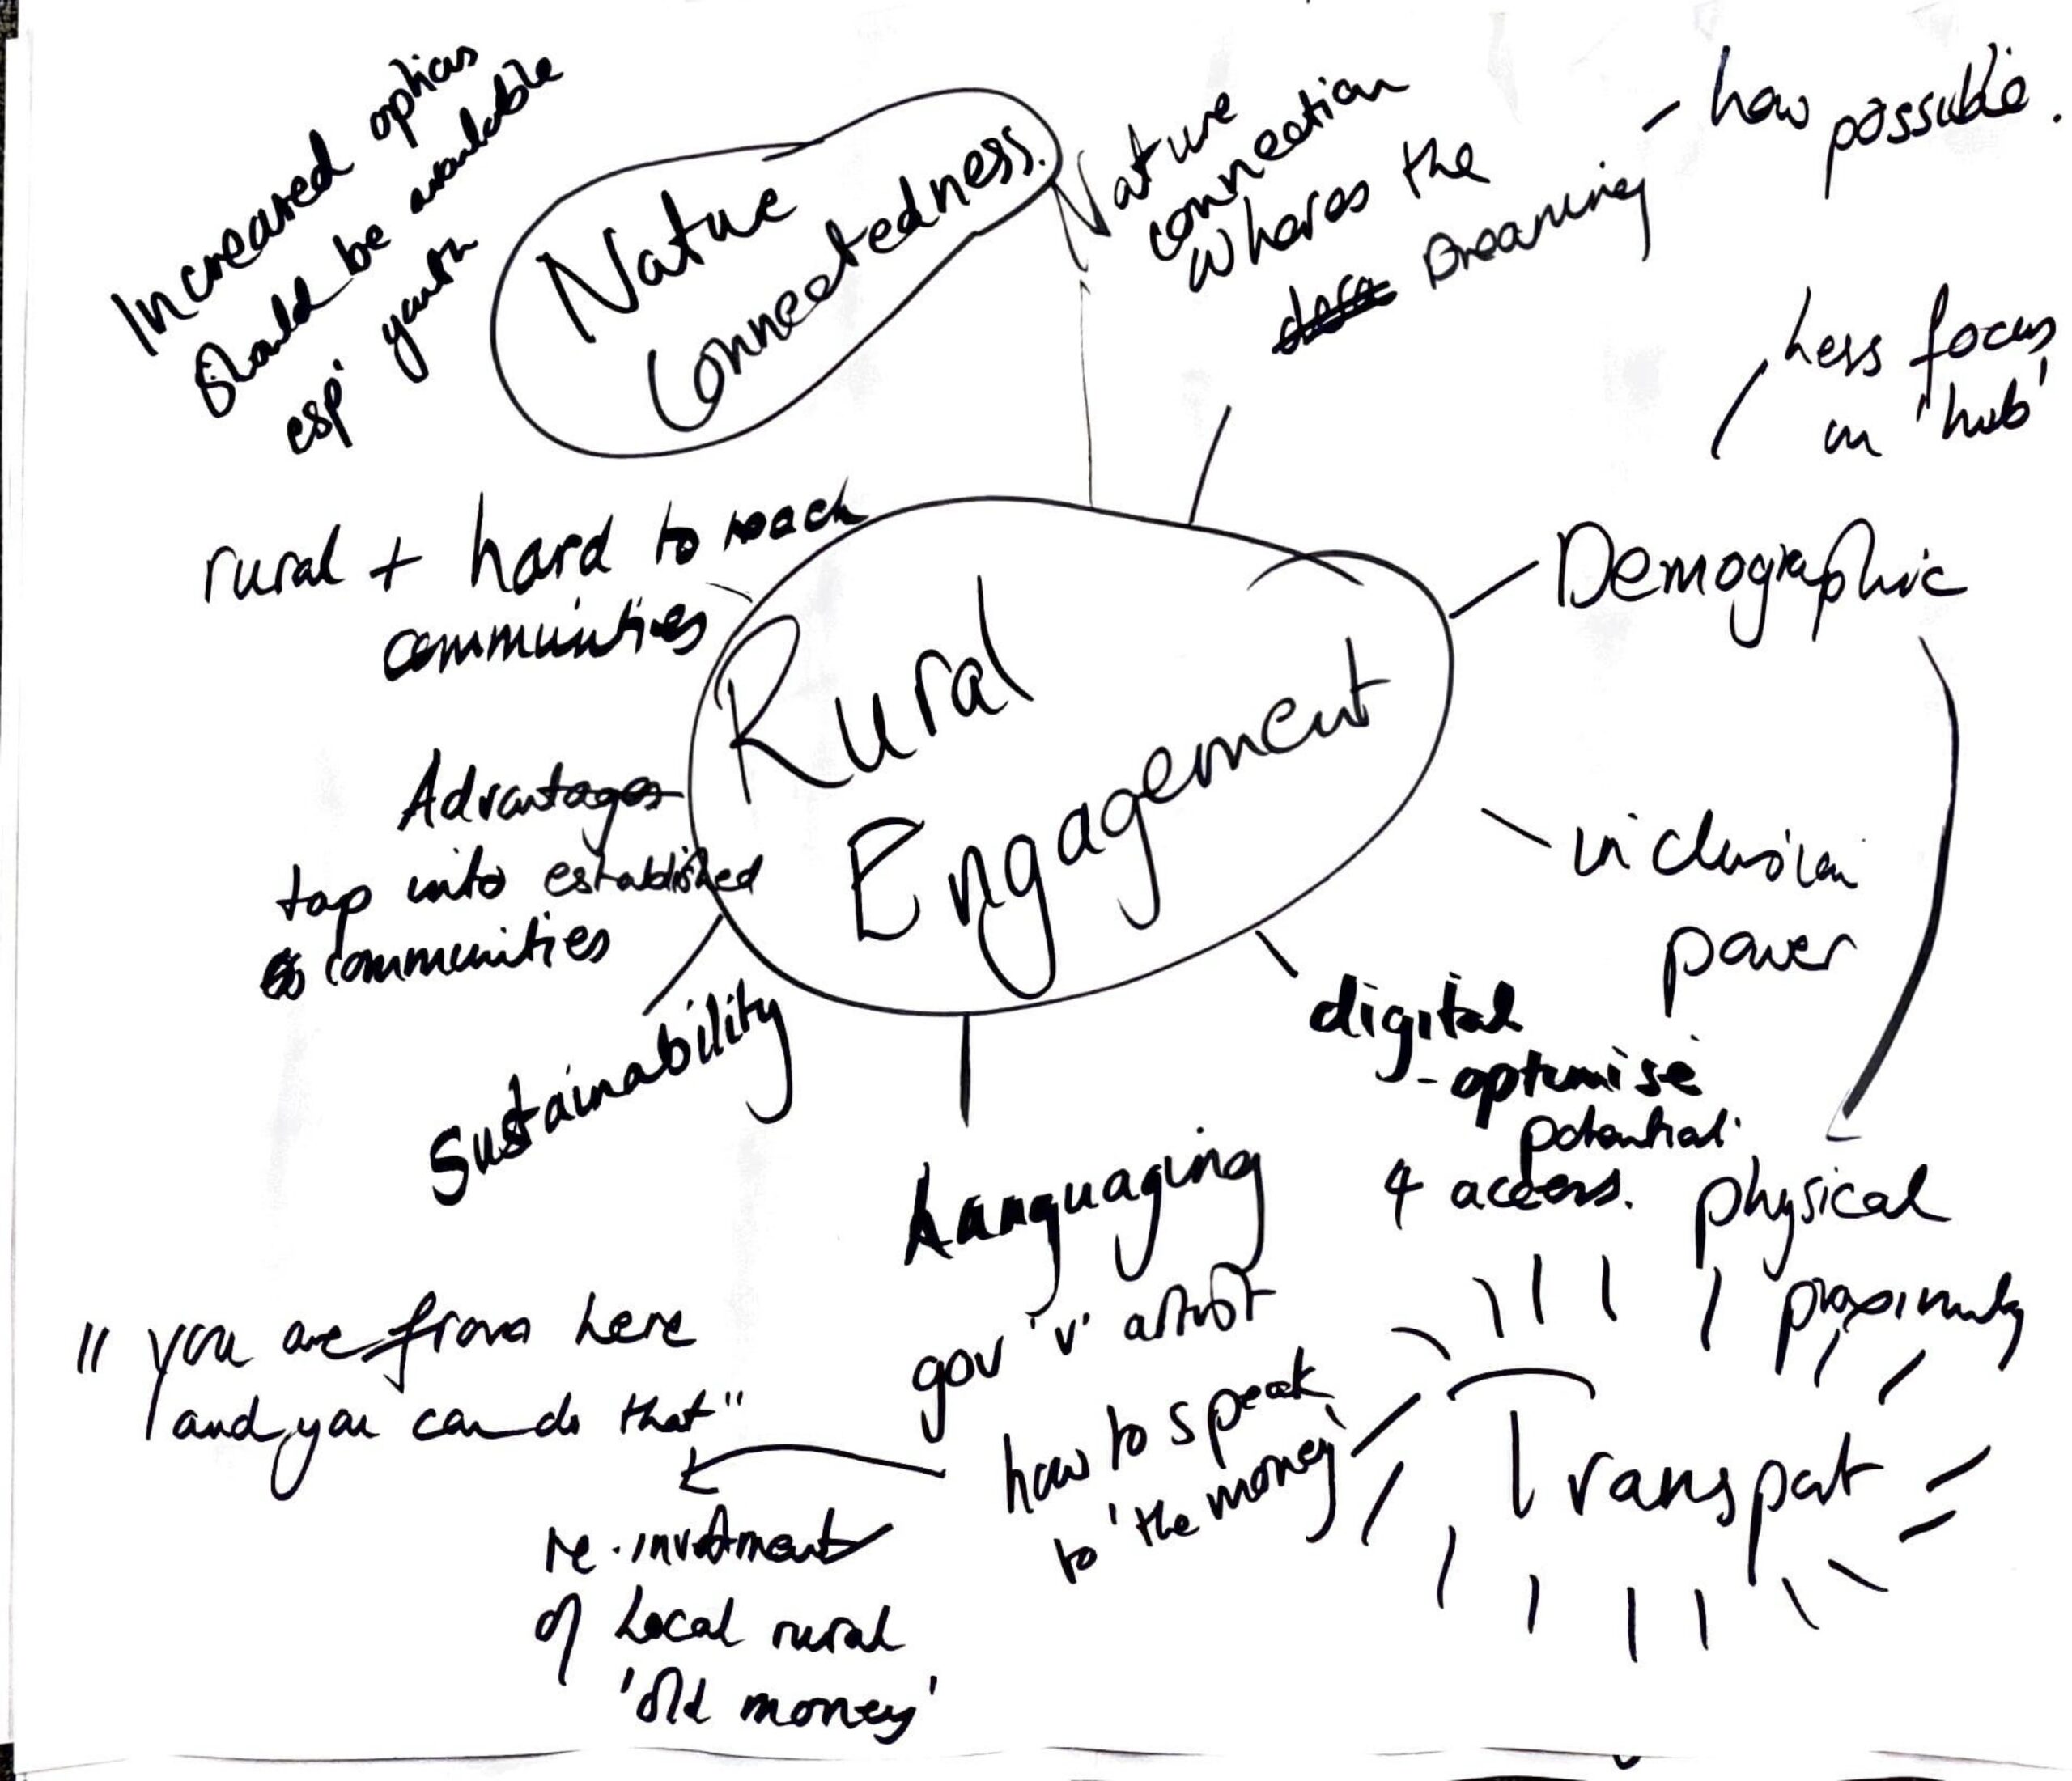 Increased options
Should be available
esp' youth
Nature
Connectedness.
Nature
connection
Whares the
Dreaming
- how possible.
Less focus
on 'hub'
rural + hard to reach
communities
Rural
Engagement
Demographic
Advantages
tap into established
communities
inclusion
power
Sustainability
digital
- optimise
potential
4 access.
physical
proximity
Languaging
gov 'v' artist
how to speak
to 'the money'
Transport
"you are from here
and you can do that"
re-investment
of Local rural
'old money'